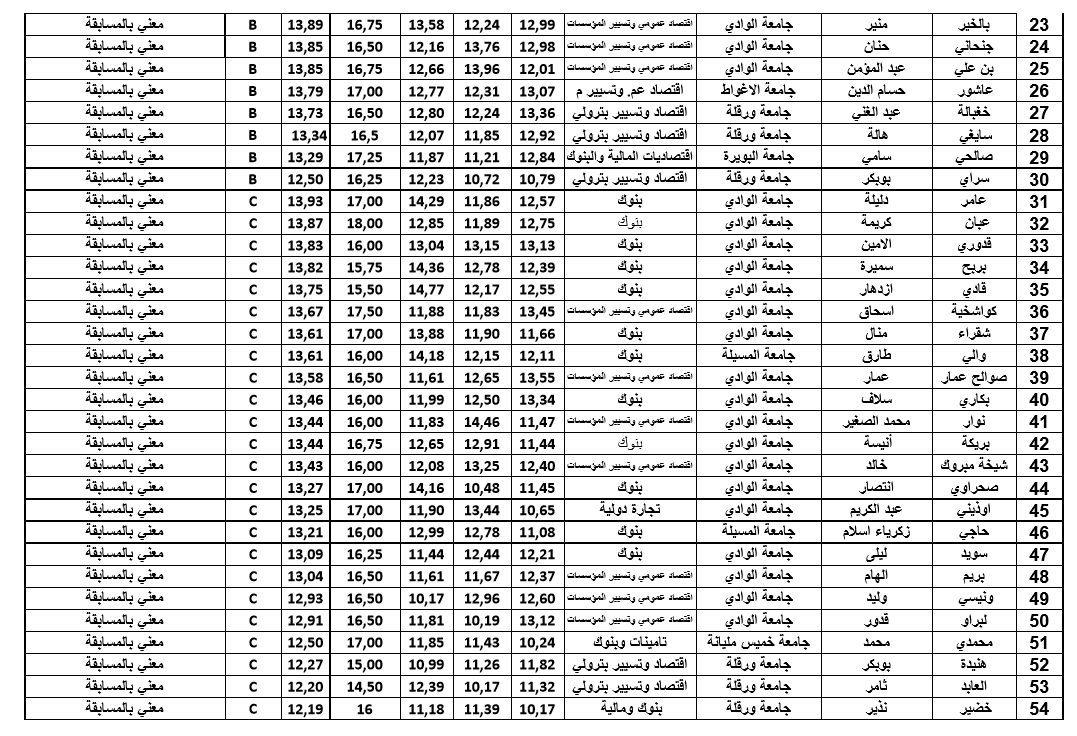 23 بالخير منير جامعة الوادي اقتصاد عمومي وتسيير المؤسسات 12,99 12,24 13,58 16,75 13,89 B معني بالمسابقة
24 جنحاني حنان جامعة الوادي اقتصاد عمومي وتسيير المؤسسات 12,98 13,76 12,16 16,50 13,85 B معني بالمسابقة
25 بن علي عبد المؤمن جامعة الوادي اقتصاد عمومي وتسيير المؤسسات 12,01 13,96 12,66 16,75 13,85 B معني بالمسابقة
26 عاشور حسام الدين جامعة الاغواط اقتصاد عم. وتسيير م 13,07 12,31 12,77 17,00 13,79 B معني بالمسابقة
27 خغبالة عبد الغني جامعة ورقلة اقتصاد وتسيير بترولي 13,36 12,24 12,80 16,50 13,73 B معني بالمسابقة
28 سايغي هالة جامعة ورقلة اقتصاد وتسيير بترولي 12,92 11,85 12,07 16,5 13,34 B معني بالمسابقة
29 صالحي سامي جامعة البويرة اقتصاديات المالية والبنوك 12,84 11,21 11,87 17,25 13,29 B معني بالمسابقة
30 سراي بوبكر جامعة ورقلة اقتصاد وتسيير بترولي 10,79 10,72 12,23 16,25 12,50 B معني بالمسابقة
31 عامر دليلة جامعة الوادي بنوك 12,57 11,86 14,29 17,00 13,93 C معني بالمسابقة
32 عبان كريمة جامعة الوادي بنوك 12,75 11,89 12,85 18,00 13,87 C معني بالمسابقة
33 قدوري الامين جامعة الوادي بنوك 13,13 13,15 13,04 16,00 13,83 C معني بالمسابقة
34 بريح سميرة جامعة الوادي بنوك 12,39 12,78 14,36 15,75 13,82 C معني بالمسابقة
35 قادي ازدهار جامعة الوادي بنوك 12,55 12,17 14,77 15,50 13,75 C معني بالمسابقة
36 كواشخية اسحاق جامعة الوادي اقتصاد عمومي وتسيير المؤسسات 13,45 11,83 11,88 17,50 13,67 C معني بالمسابقة
37 شقراء منال جامعة الوادي بنوك 11,66 11,90 13,88 17,00 13,61 C معني بالمسابقة
38 والي طارق جامعة المسيلة بنوك 12,11 12,15 14,18 16,00 13,61 C معني بالمسابقة
39 صوالح عمار عمار جامعة الوادي اقتصاد عمومي وتسيير المؤسسات 13,55 12,65 11,61 16,50 13,58 C معني بالمسابقة
40 بكاري سلاف جامعة الوادي بنوك 13,34 12,50 11,99 16,00 13,46 C معني بالمسابقة
41 نوار محمد الصغير جامعة الوادي اقتصاد عمومي وتسيير المؤسسات 11,47 14,46 11,83 16,00 13,44 C معني بالمسابقة
42 بريكة أنيسة جامعة الوادي بنوك 11,44 12,91 12,65 16,75 13,44 C معني بالمسابقة
43 شيخة مبروك خالد جامعة الوادي اقتصاد عمومي وتسيير المؤسسات 12,40 13,25 12,08 16,00 13,43 C معني بالمسابقة
44 صحراوي انتصار جامعة الوادي بنوك 11,45 10,48 14,16 17,00 13,27 C معني بالمسابقة
45 اوذيني عبد الكريم جامعة الوادي تجارة دولية 10,65 13,44 11,90 17,00 13,25 C معني بالمسابقة
46 حاجي زكرياء اسلام جامعة المسيلة بنوك 11,08 12,78 12,99 16,00 13,21 C معني بالمسابقة
47 سويد ليلى جامعة الوادي بنوك 12,21 12,44 11,44 16,25 13,09 C معني بالمسابقة
48 بريم الهام جامعة الوادي اقتصاد عمومي وتسيير المؤسسات 12,37 11,67 11,61 16,50 13,04 C معني بالمسابقة
49 ونيسي وليد جامعة الوادي اقتصاد عمومي وتسيير المؤسسات 12,60 12,96 10,17 16,50 12,93 C معني بالمسابقة
50 لبراو قدور جامعة الوادي اقتصاد عمومي وتسيير المؤسسات 13,12 10,19 11,81 16,50 12,91 C معني بالمسابقة
51 محمدي محمد جامعة خميس مليانة تامينات وبنوك 10,24 11,43 11,85 17,00 12,50 C معني بالمسابقة
52 هنيدة بوبكر جامعة ورقلة اقتصاد وتسيير بترولي 11,82 11,26 10,99 15,00 12,27 C معني بالمسابقة
53 العابد ثامر جامعة ورقلة اقتصاد وتسيير بترولي 11,32 10,17 12,39 14,50 12,20 C معني بالمسابقة
54 خضير نذير جامعة ورقلة بنوك ومالية 10,17 11,39 11,18 16 12,19 C معني بالمسابقة